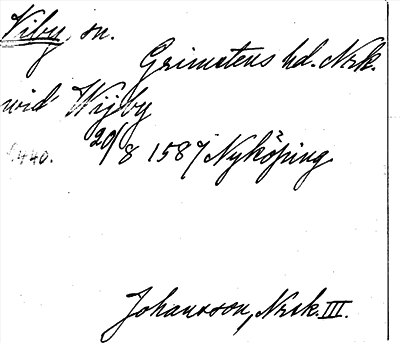 Viby, sn.
Grimstens hd. Nrk.
wid Wijby
20/8 1587 Nyköping
440.
Johansson, Nrk. III.